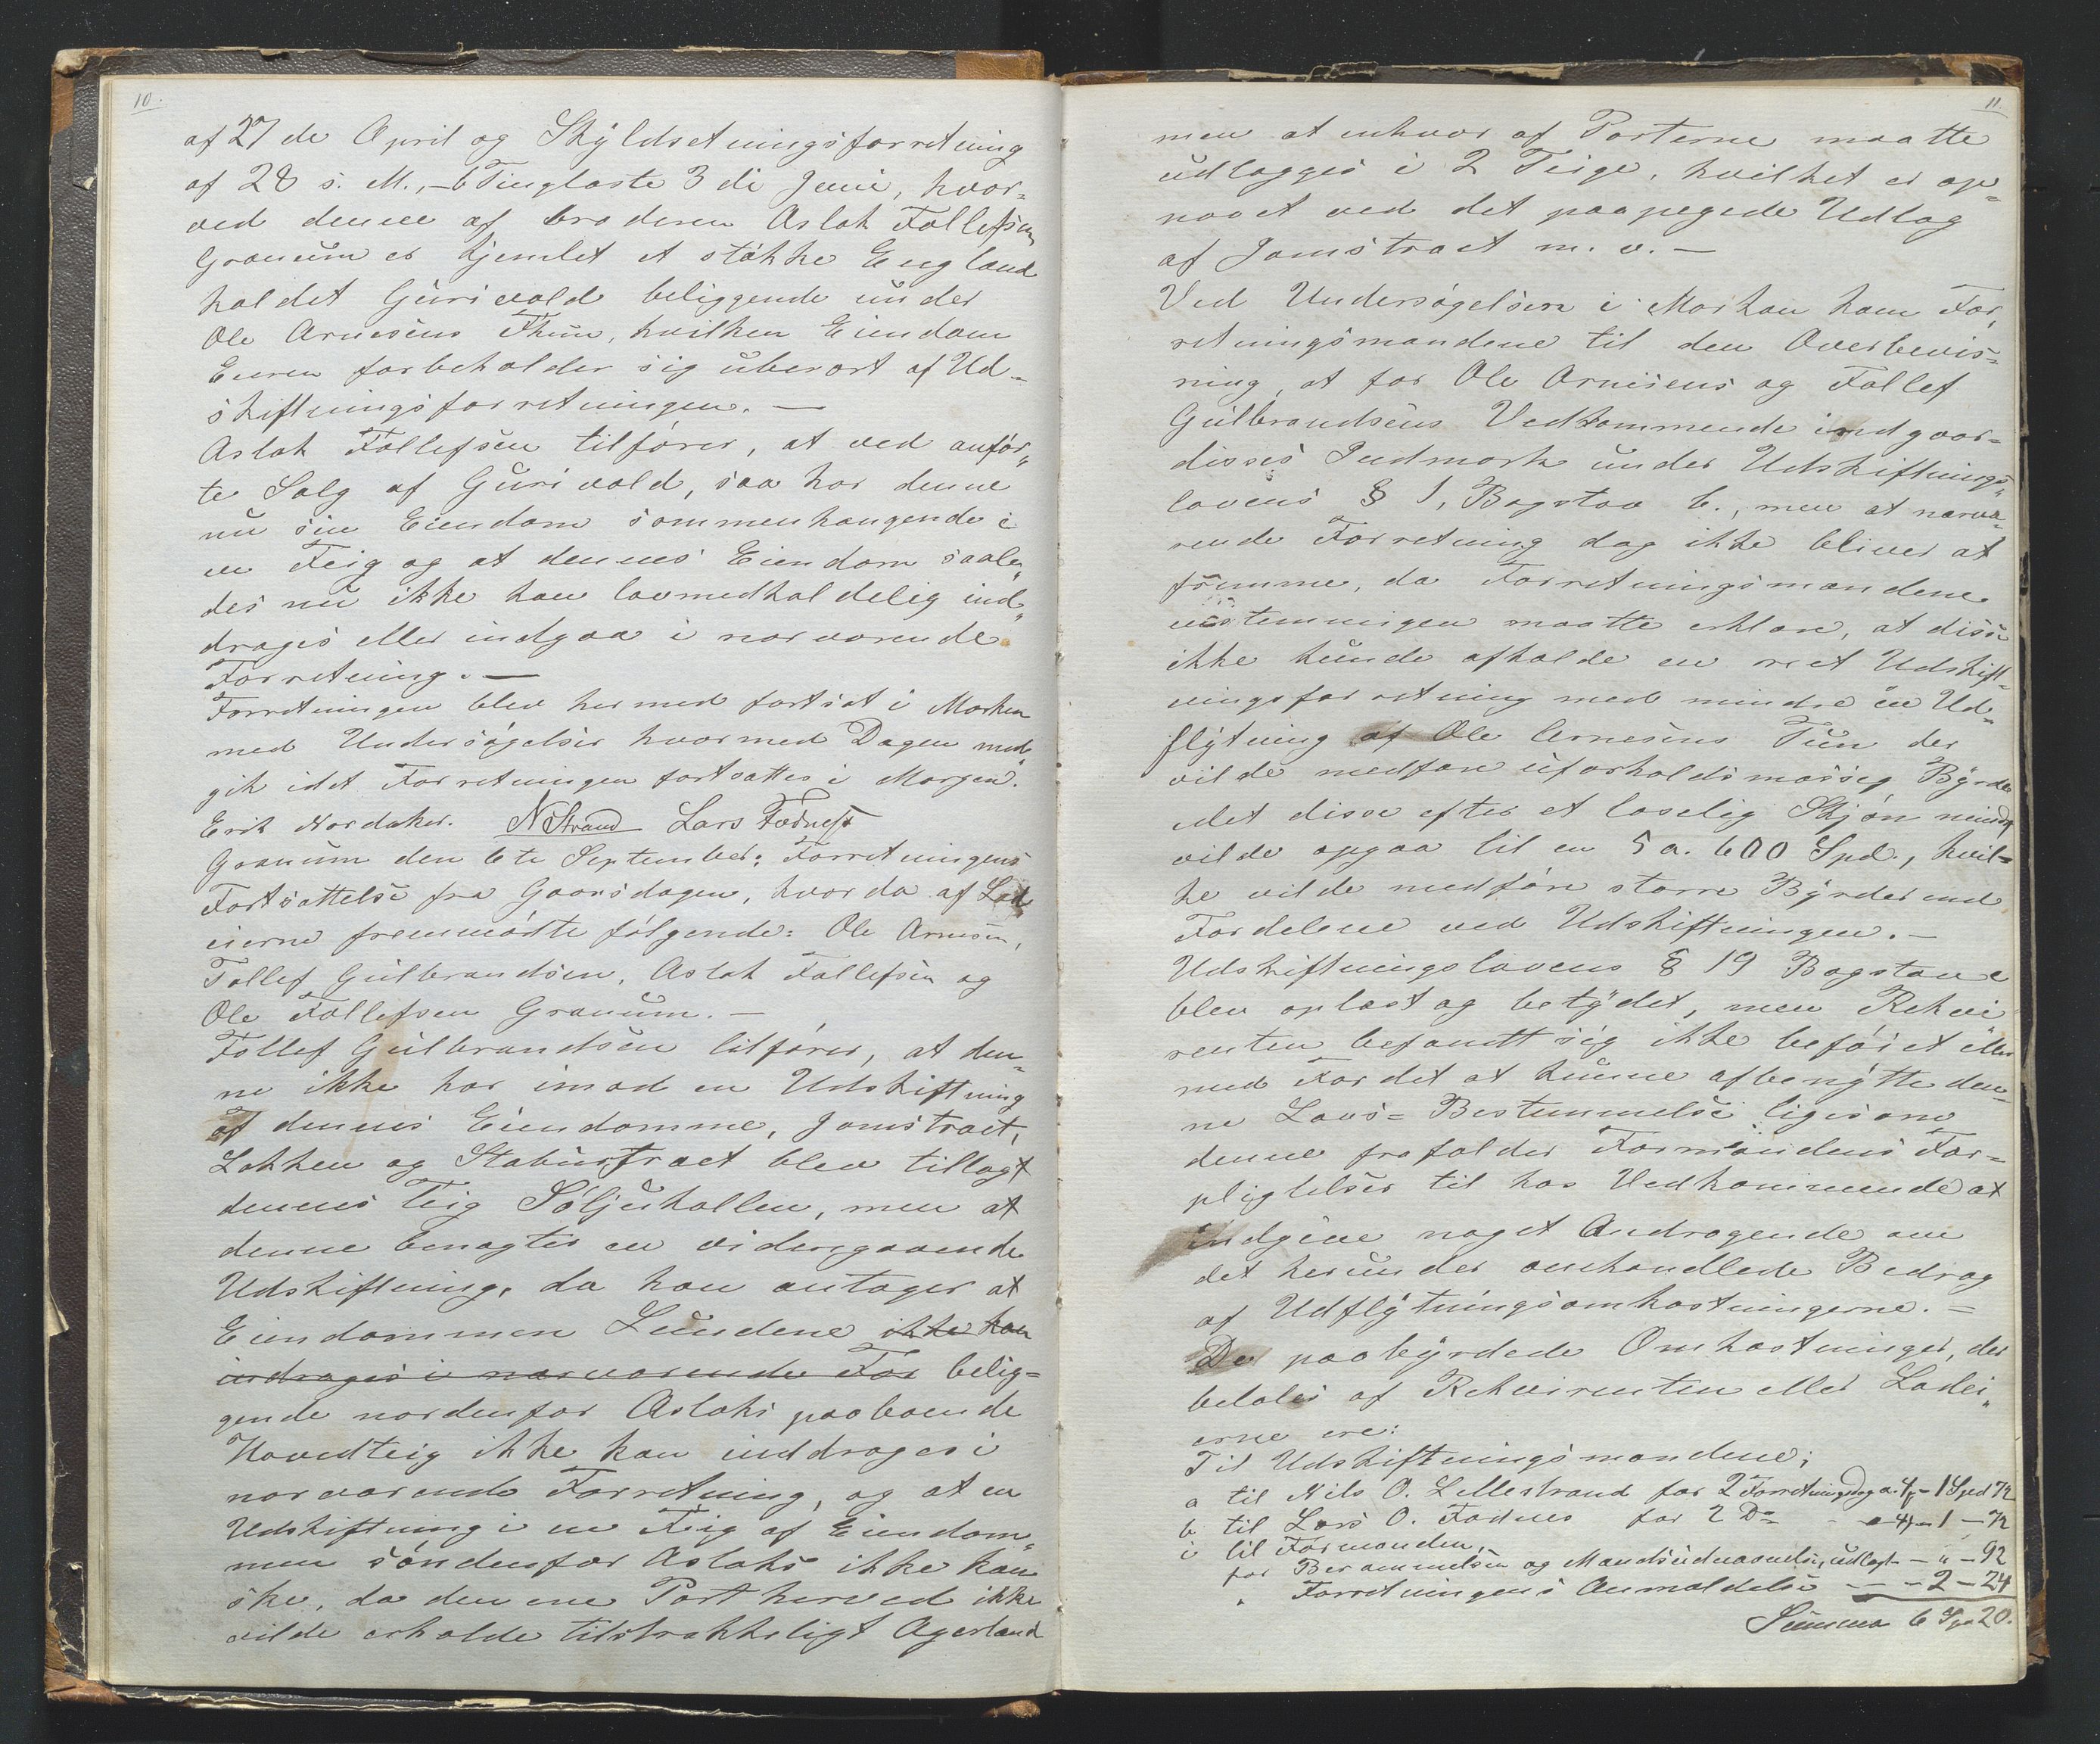 10.
af 27de April og Skyldsetningsforretning
af 28 s. M., - tinglæste 3die Juni, hvor-
ved denne af broderen Aslak Tollefsen
Granum er kjendet et stökke England
kaldet Gurivold beliggende under
Ole Arnesens Thun, hvilken Eiendom
Eieren forbeholder sig uberørt af Ud-
skiftningsforretningen. —
Aslak Tollefsen tilfører, at ved anfør-
te Salg af Gurivold, saa har denne
nu sin Eiendom sammenhængende i
en Teig og at dennes Eiendom saale-
des nu ikke kan lovmedholdelig ind-
drages eller indgaa i nærværende
Forretning. —
Forretningen blev hermed fortsat i Marken
med Undersøgelser hvormed Dagen med-
gik idet Forretningen fortsattes i Morgen.
Erik Nordaker. N Strand Lars Fodnes
Granum den 6te September. Forretningens
Fortsættelse fra Gaarsdagen, hvor da af Lod-
eierne fremmødte følgende: Ole Arnesen,
Tollef Gulbrandsen, Aslak Tollefsen og
Ole Tollefsen Granum. —
Tollef Gulbrandsen tilfører, at den-
ne ikke har imod en Udskiftning
af dennes Eiendomme, Jonstraet,
Løkken og Stabustraet blev tillagt
dennes Teig Søljukollen, men at
denne benægter en videregaaende
Udskiftning, da han antager at
Eiendommen Lundene ikke kan
indrages i nærværende For belig-
gende nordenfor Aslaks paaboende
Hovedteig ikke kan inddrages i
nærværende Forretning, og at en
Udskiftning i en Teig af Eiendom-
men søndenfor Aslaks ikke kan
ske, da den ene Part herved ikke
vilde erholde tilstrækkeligt Agerland
11.
men at enhver af Parterne maatte
udlægges i 2 Teige, hvilket er op-
naaet ved det paapegede Udlæg
af Jonstraet m. v. —
Ved Undersøgelsen i Marken kom For-
retningsmændene til den Overbevis-
ning, at for Ole Arnesens og Tollef
Gulbrandsens Vedkommende indgaar
disses Indmark under Udskiftnings-
lovens § 1, Bogstav b., men at nærvæ-
rende Forretning dog ikke bliver at
fremme, da Forretningsmændene
enstemmigen maatte erklære, at disse
ikke kunde afholde en ret Udskift-
ningsforretning med mindre en Ud-
flytning af Ole Arnesens Tun der
vilde medføre uforholdsmæssig Byrde
idet disse efter et løselig Skjøn mindst
vilde opgaa til en 5 a. 600 Spd., hvil-
ke vilde medføre større Byrder end
Fordelene ved Udskiftningen. —
Udskiftningslovens § 19 Bogstav c
blev oplæst og betydet, men Rekvi-
renten befandt sig ikke beføiet eller
med Fordel at kunne afbenytte den-
ne Lovs-Bestemmelse ligesom
denne frafalder Formandens For-
pligtelser til hos Vedkommende at
indgive noget Andragende om
det herunder omhandlede Bedrag
af Udflytningsomkostningerne. —
De paabyrdede Omkostninger, der
betales af Rekvirenten eller Lodei-
erne ere:
Til Udskiftningsmændene;
a til Nils O. Lillestrand for 2 Forretningsdag a. 4 - 1 Spd 72
b til Lars O. Fodnes for 2 Do - a 4 - 1 - 72
c til Formanden,
for Berammelsen og Mandsudnævnelse, udlagt - " - 92
" Forretningens Anmældelse — - 2 - 24
Summa 6 Spd 20.